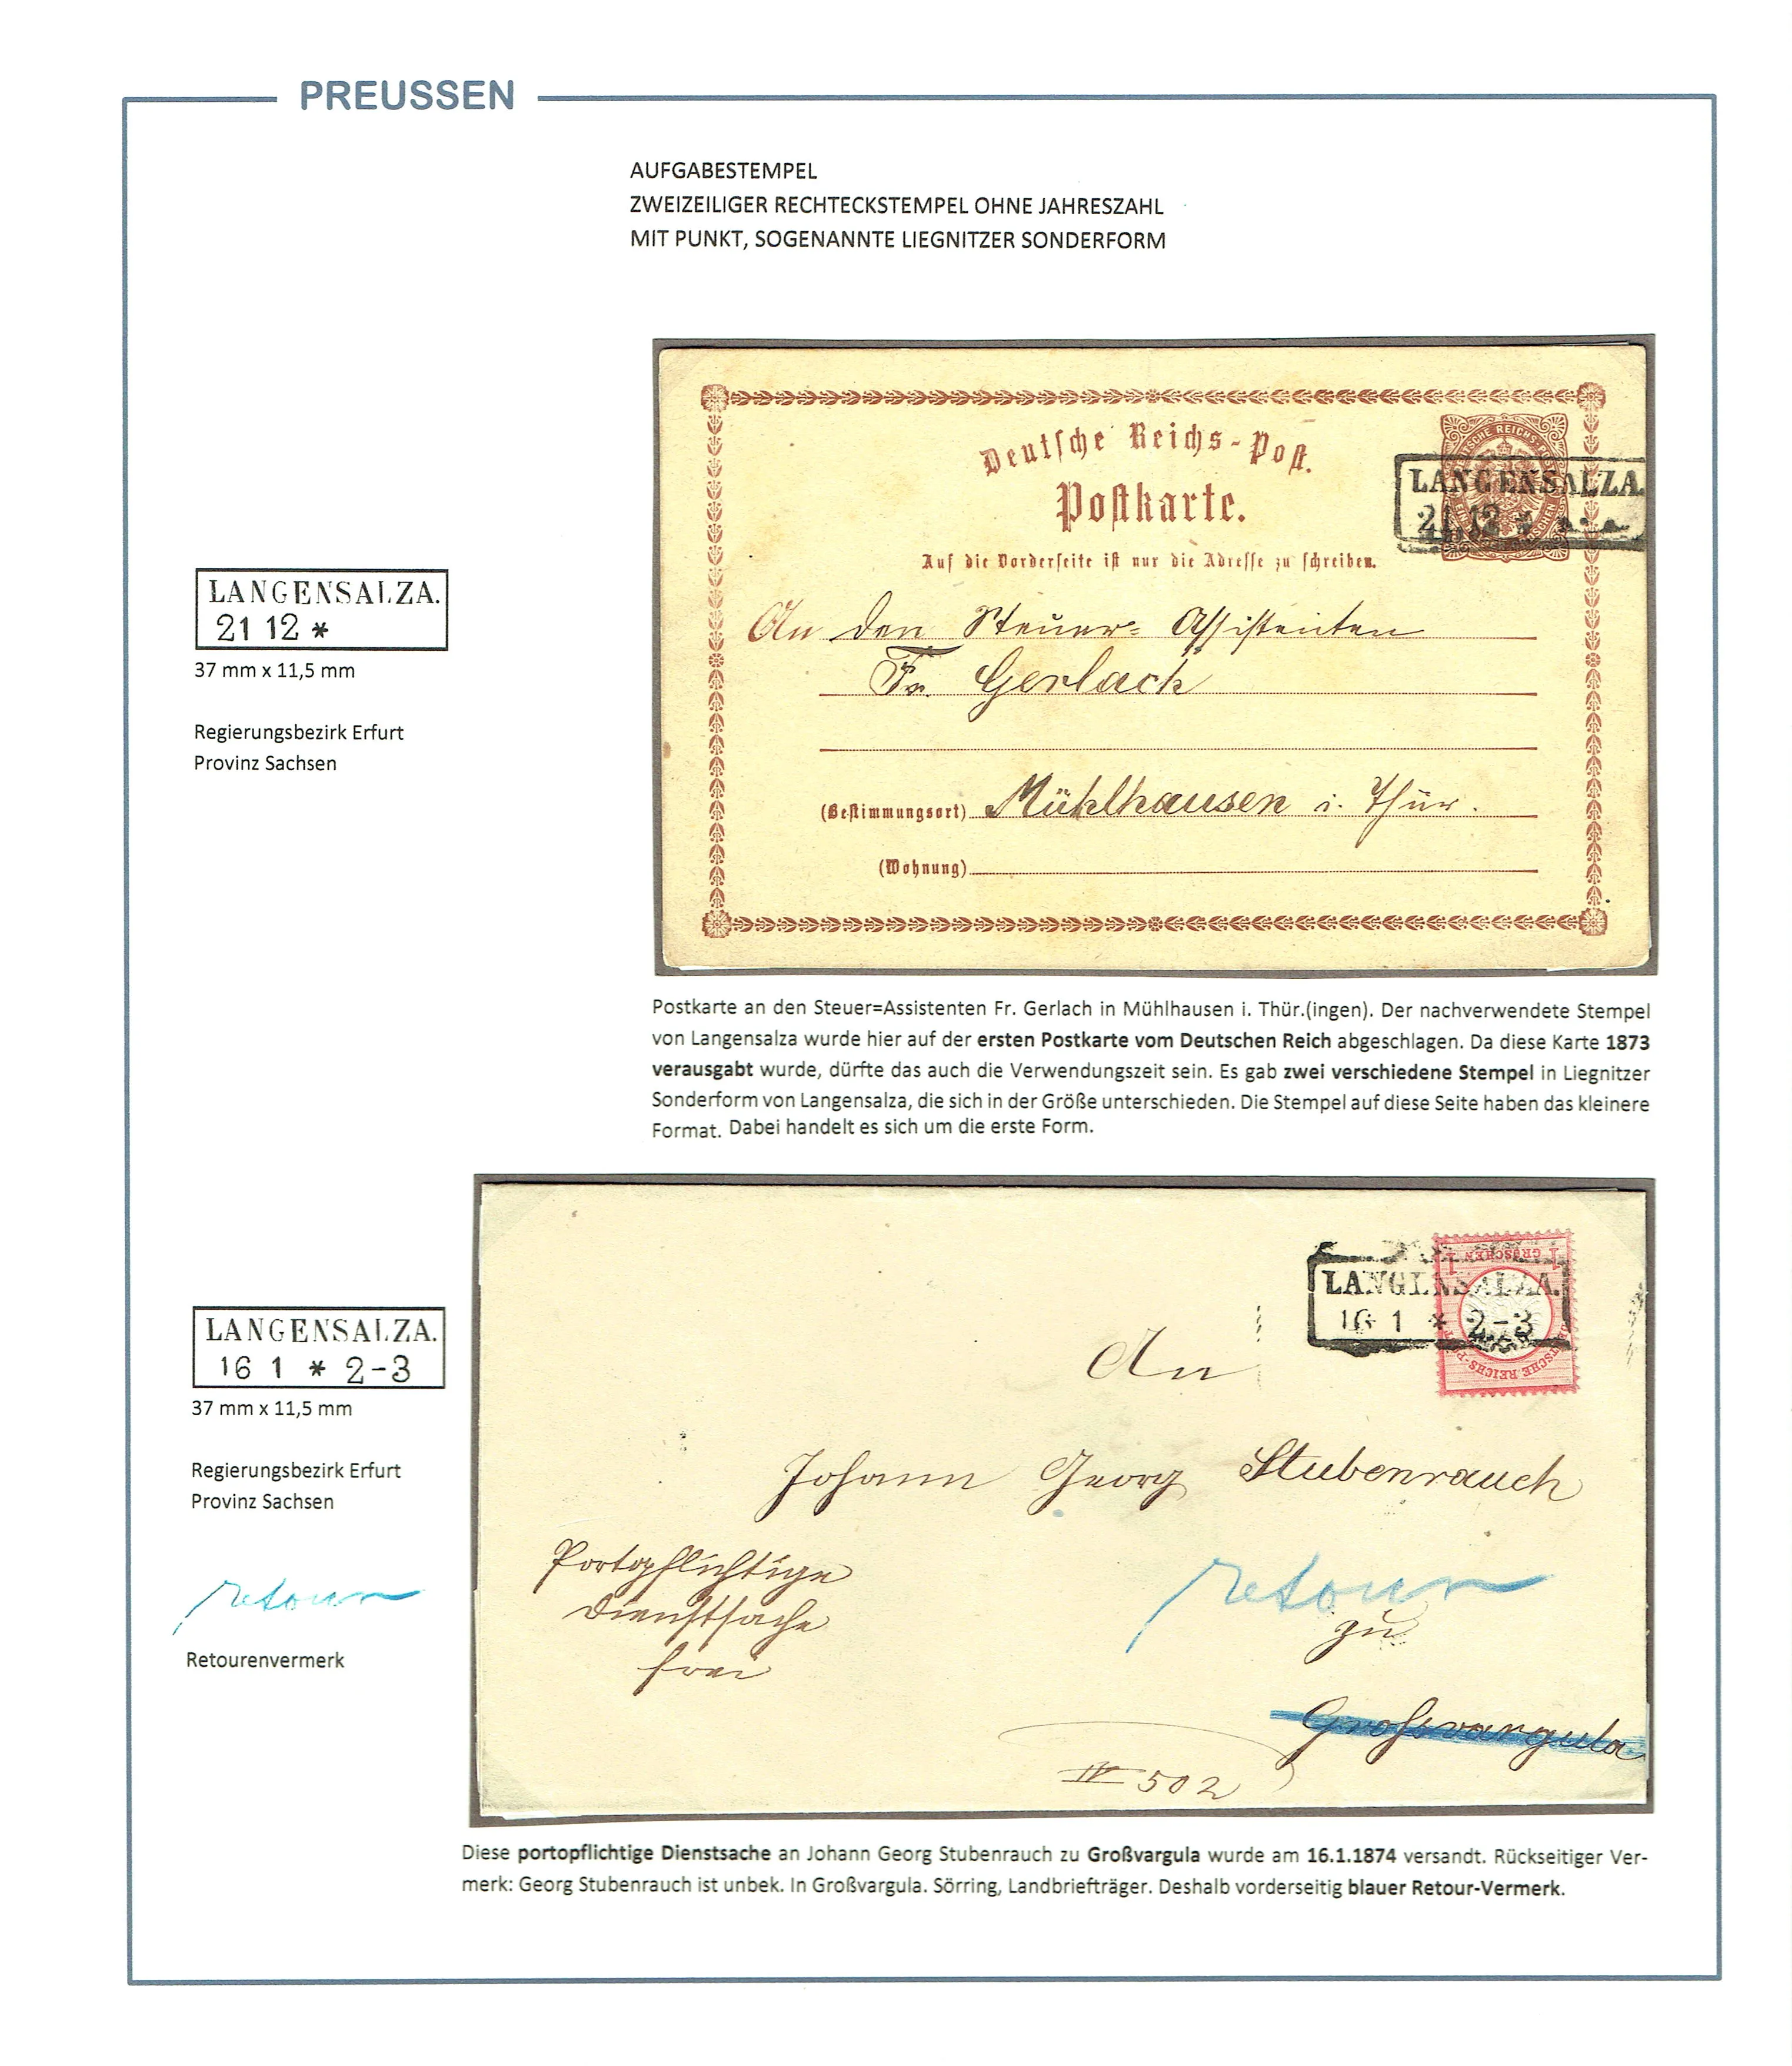 PREUSSEN
AUFGABESTEMPEL
ZWEIZEILIGER RECHTECKSTEMPEL OHNE JAHRESZAHL
MIT PUNKT, SOGENANNTE LIEGNITZER SONDERFORM
Deutsche Reichs-Post.
Postkarte.
LANGENSALZA.
21 12 *
Auf die Vorderseite ist nur die Adresse zu schreiben.
An den Steuer= Assistenten
Fr. Gerlach
(Bestimmungsort) Mühlhausen i. Thür.
(Wohnung)
LANGENSALZA.
21 12 *
37 mm x 11,5 mm
Regierungsbezirk Erfurt
Provinz Sachsen
Postkarte an den Steuer=Assistenten Fr. Gerlach in Mühlhausen i. Thür.(ingen). Der nachverwendete Stempel
von Langensalza wurde hier auf der ersten Postkarte vom Deutschen Reich abgeschlagen. Da diese Karte 1873
verausgabt wurde, dürfte das auch die Verwendungszeit sein. Es gab zwei verschiedene Stempel in Liegnitzer
Sonderform von Langensalza, die sich in der Größe unterschieden. Die Stempel auf diese Seite haben das kleinere
Format. Dabei handelt es sich um die erste Form.
1 GROSCHEN 1
DEUTSCHE REICHS-POST
LANGENSALZA.
16 1 * 2-3
An
Johann Georg Stubenrauch
Portopflichtige
Dienstsache
frei
retour
zu
Großvargula
IV 502
LANGENSALZA.
16 1 * 2-3
37 mm x 11,5 mm
Regierungsbezirk Erfurt
Provinz Sachsen
retour
Retourenvermerk
Diese portopflichtige Dienstsache an Johann Georg Stubenrauch zu Großvargula wurde am 16.1.1874 versandt. Rückseitiger Ver-
merk: Georg Stubenrauch ist unbek. In Großvargula. Sörring, Landbriefträger. Deshalb vorderseitig blauer Retour-Vermerk.